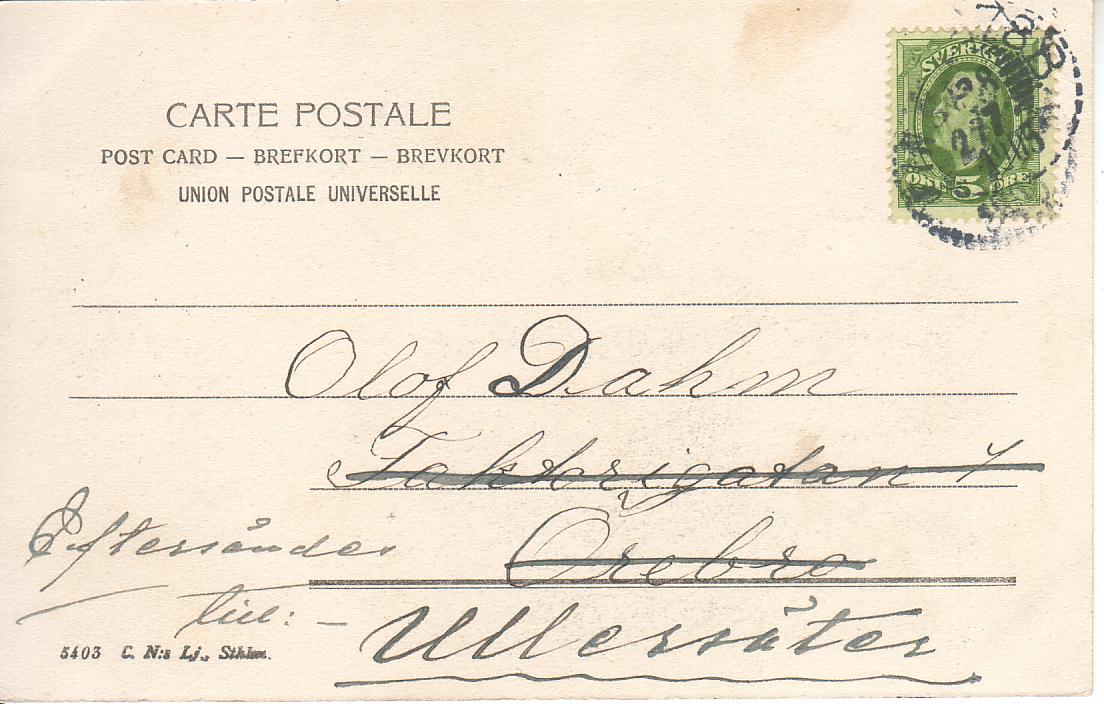 CARTE POSTALE
POST CARD — BREFKORT — BREVKORT
UNION POSTALE UNIVERSELLE
SVERIGE
ÖRE 5 ÖRE
Olof Dahm
Faktorigatan 1
Örebro
Eftersändes
till: —
Ullersäter
5403 C. N:s Lj., Sthlm.